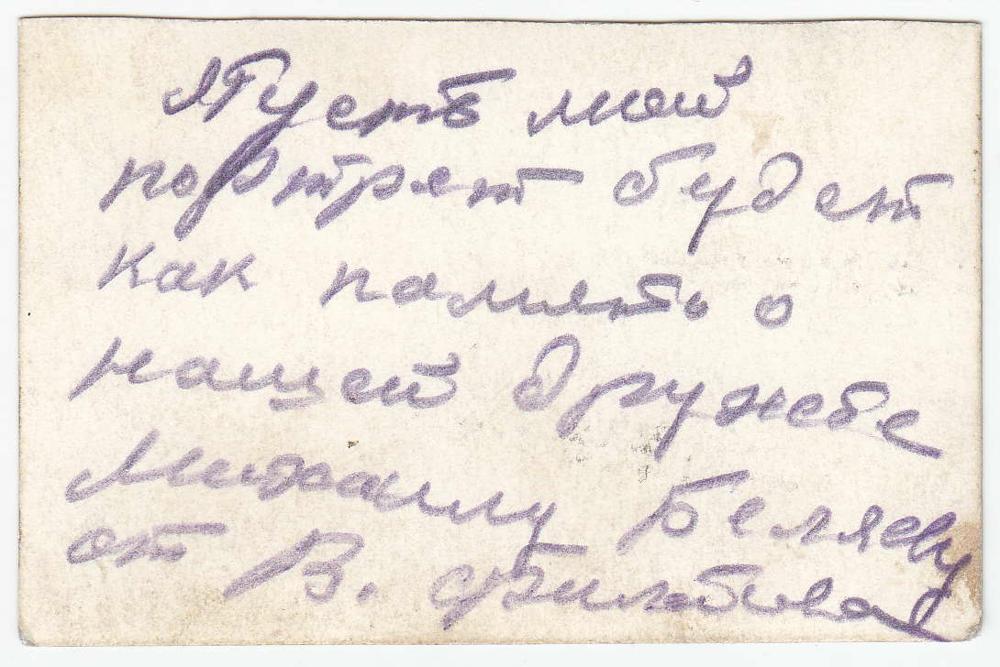 Пусть мой
портрет будет
как память о
нашей дружбе
Михаилу Беляеву
от В.